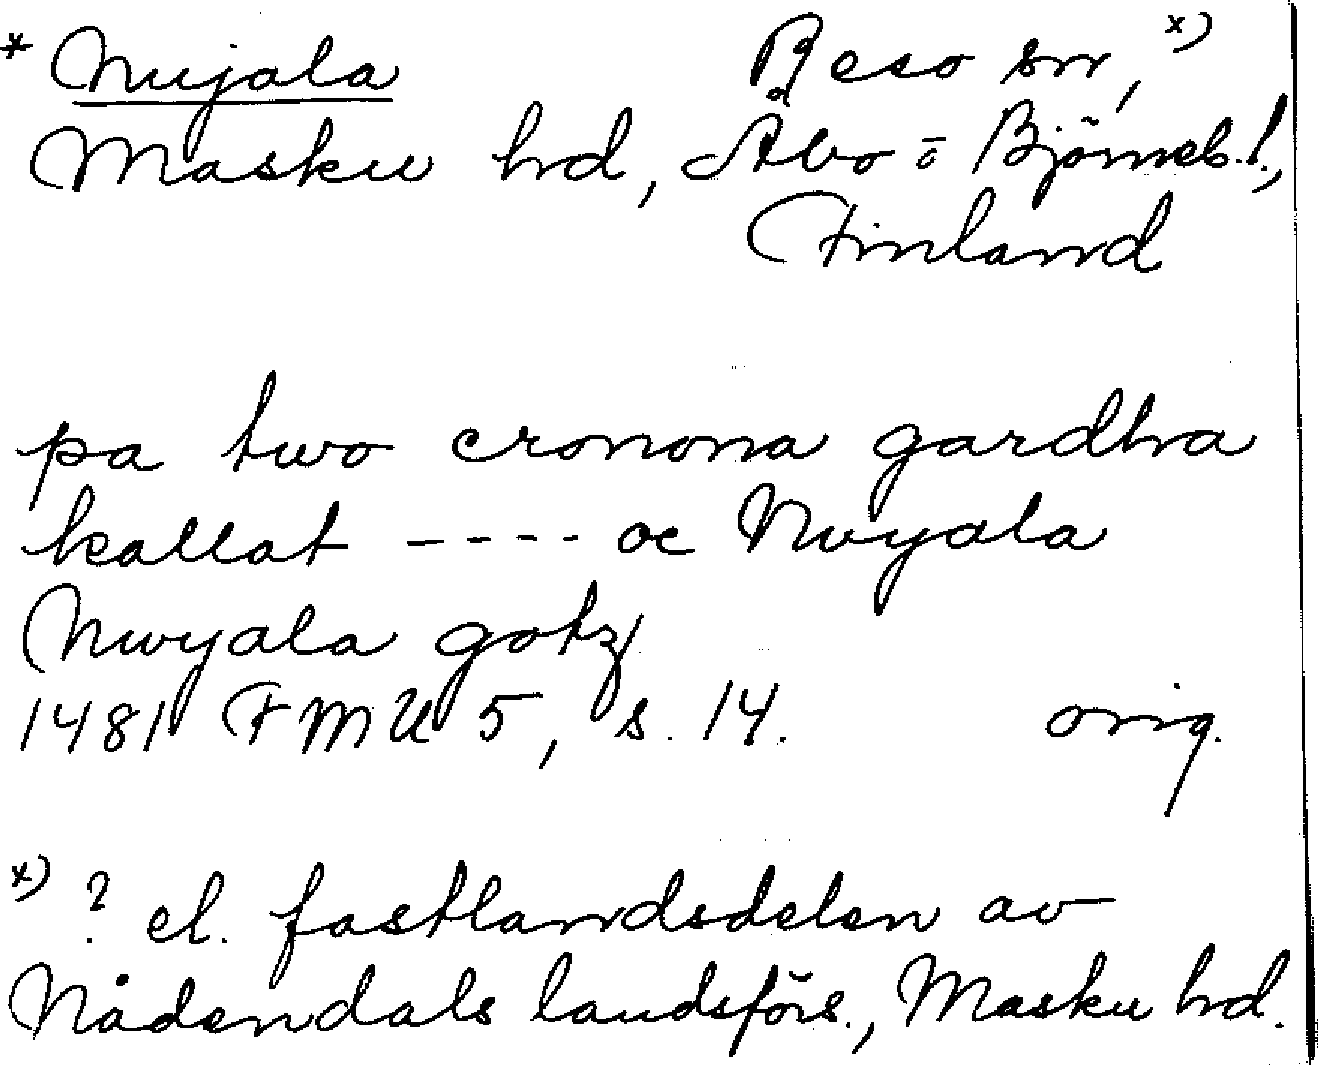 * Nujala Reso sn, x)
Masku hd, Åbo o Björneb. l.,
Finland
pa two cronona gardha
kallat ---- oc Nwyala
Nwyala gotz
1481 FMU 5, s. 14. orig.
x) ? el. fastlandsdelen av
Nådendals landsförs., Masku hd.